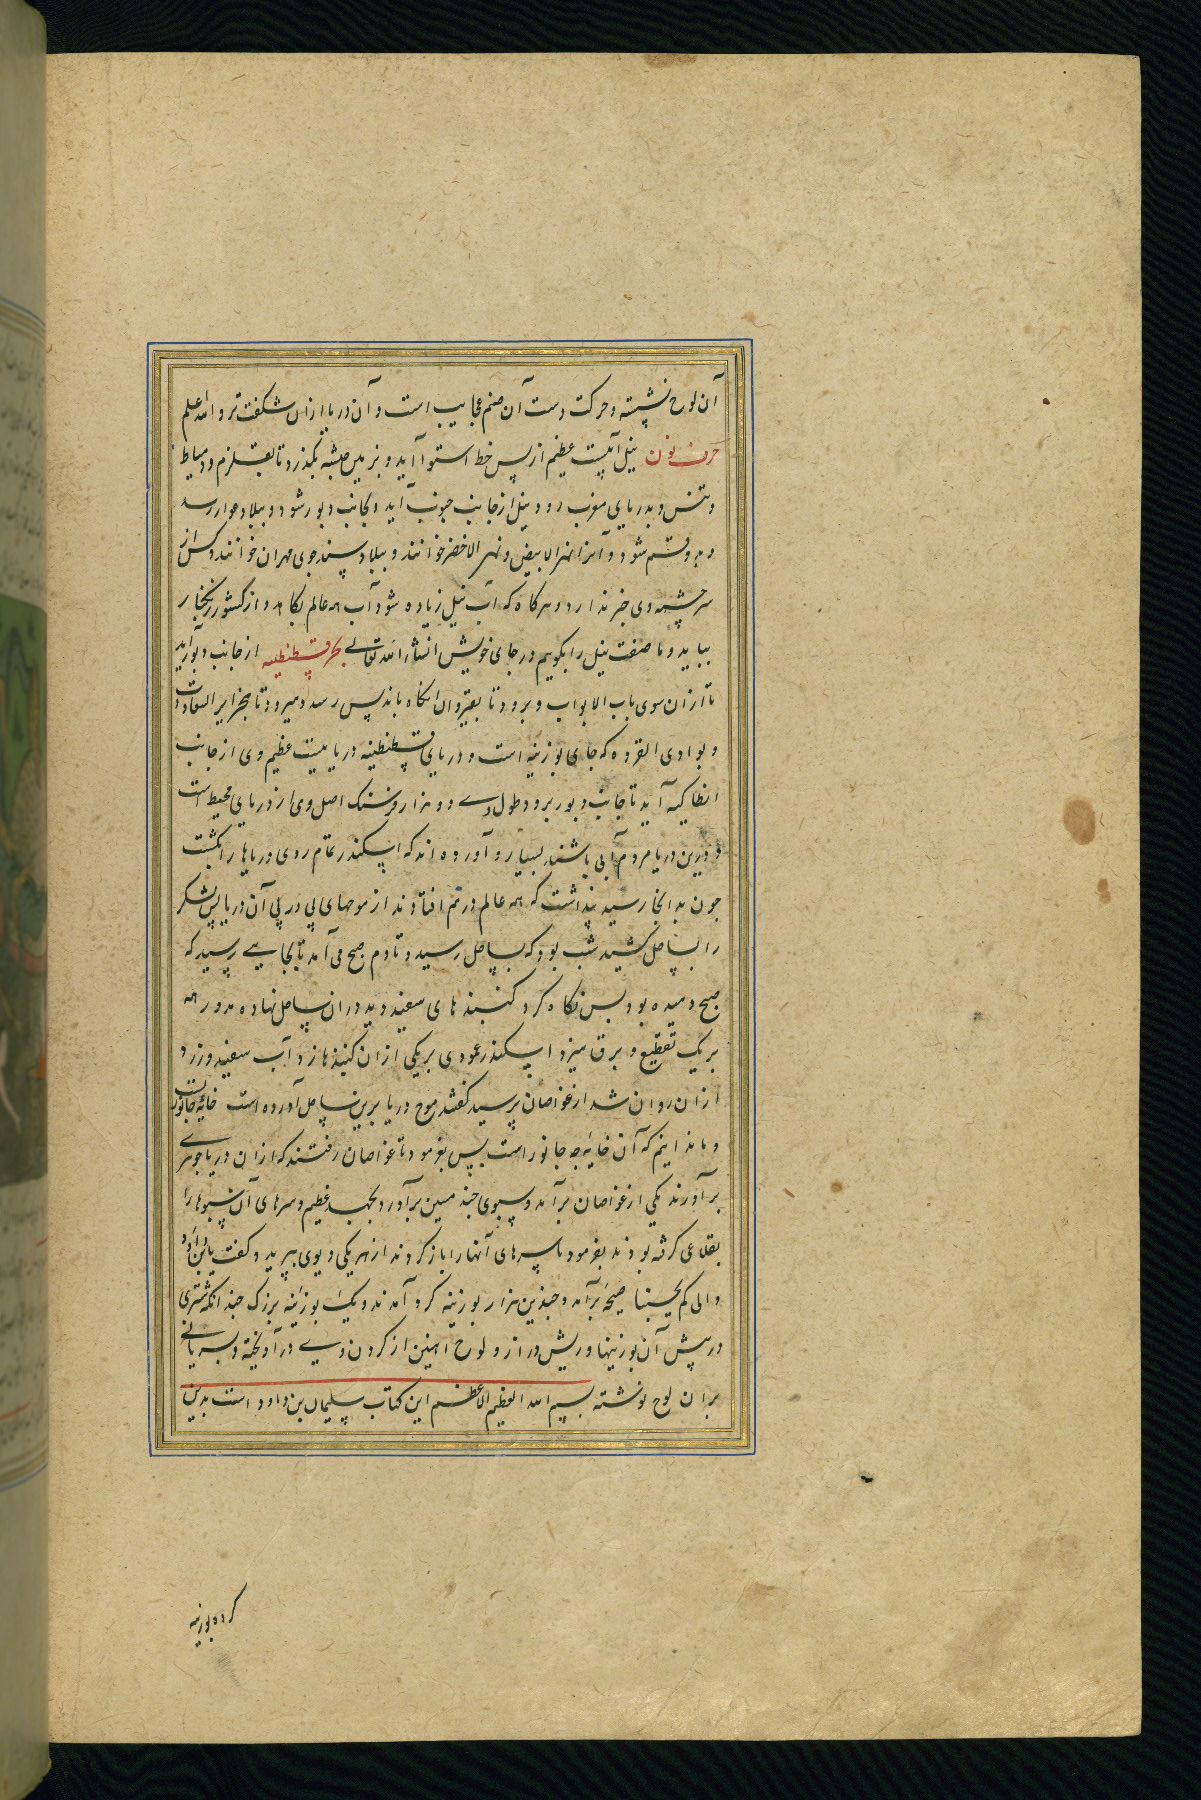 آن لوح نبشته و حرکت دست آن صنم عجایب است و آن دریا ازان شکفت تر و الله اعلم
حرف نون نیل آبیست عظیم از پس خط استوا آید و بزمین حبشه بگذرد تا بقلزم و دمیاط
و تنس و بدریای مغرب رود و نیل از جانب جنوب آید و بجانب دبور شود و ببلاد
و بدو قسم شود و آنرا نهر الابیض و نهر الاخضر خوانند و ببلاد سند جوی مهران خوانند و کس از
سرچشمه وی خبر ندارد و هرکاه که آب نیل زیاده شود آب همه عالم بکاهد و از کشور
بباید و ما صفت نیل را بکوییم در جای خویش انشاء الله تعالی بحر قسطنطنیه از جانب دبور آید
تا ازان سوی باب الابواب و برود تا بقیروان آنکاه باندلس رسد و میرود تا بجزایر السعادت
و بوادی القرده که جای بوزینه است و دریای قسطنطنیه دریاییست عظیم وی از جانب
انطاکیه آید تا جانب دبور برود طول وی دو هزار فرسنک اصل وی از دریای محیط است
و درین دریا مردم آبی باشند بسیار و آورده اند که اسکندر تمام روی دریاها را بکشت
چون بدانجا رسید پنداشت که همه عالم درهم افتادند از موجهای پی در پی آن دریا پس لشکر
را بساحل کشید شب بود که بساحل رسید و تا دم صبح می آمد تا بجایی رسید که
صبح دمیده بود پس نکاه کرد کنبذهای سفید دید دران ساحل نهاده مدور همه
بریک تقطیع و برق میزد اسکندر عمودی بر یکی ازان کنبذها زد آب سفید و زرد
ازان روان شد از غواصان پرسید کفتند موج دریا برین ساحل آورده است خایه جانوریست
و ما ندانیم که آن خایه چه جانور است پس بفرمود تا غواصان رفتند که ازان دریا جوهری
برآورند یکی از غواصان برآمد و سبوی چند مسین برآورد بجهد عظیم و سرهای آن سبوها را
بقلاعی کرفته بودند بفرمود تا سرهای آنها را باز کردند از هر یکی دیوی بپرید و کفت یا بن داود
والی کم یحبسنا صیحه برآمد و چندین هزار بوزینه کرد آمدند و یک بوزینه بزرک چندانکه شتری
در پیش آن بوزینها و ریش دراز و لوح آهنین از کردن وی درآویخته و
بران لوح نوشته بسم الله العظیم الاعظم این کتاب سلیمان بن داود است بدین
کرده بوزینه